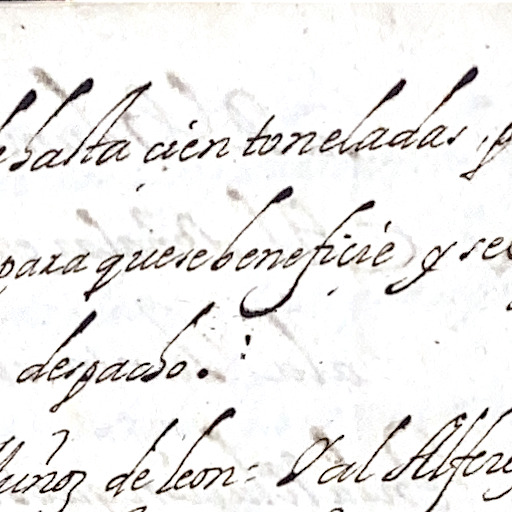 hasta cien toneladas,
para que se beneficie y se
despacho.
Muñoz de leon = Y al Alferez